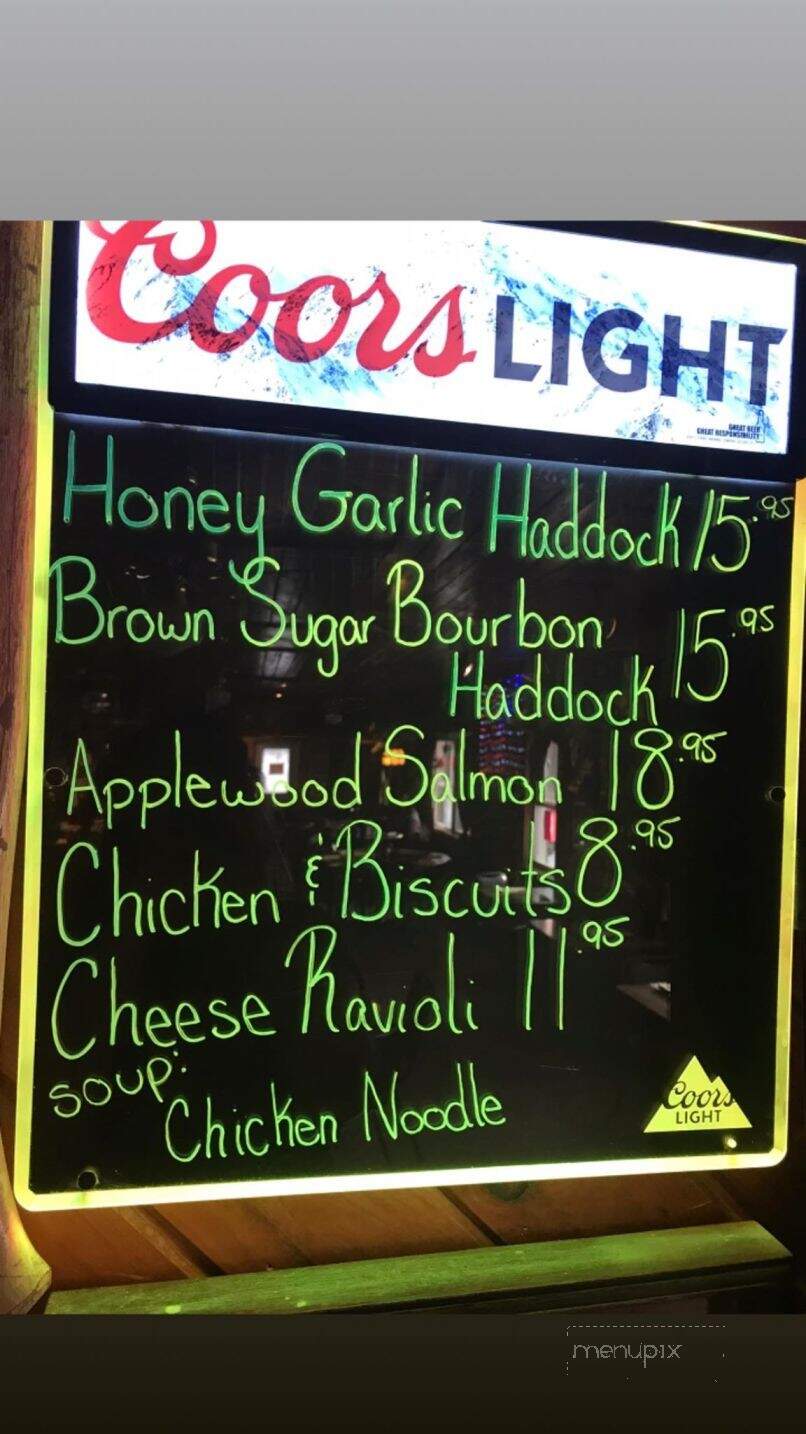 Coors LIGHT
GREAT BEER
GREAT RESPONSIBILITY
Honey Garlic Haddock 15.95
Brown Sugar Bourbon
Haddock 15.95
Applewood Salmon 18.95
Chicken & Biscuits 8.95
Cheese Ravioli 11.95
SOUP:
Chicken Noodle
Coors
LIGHT
menupix